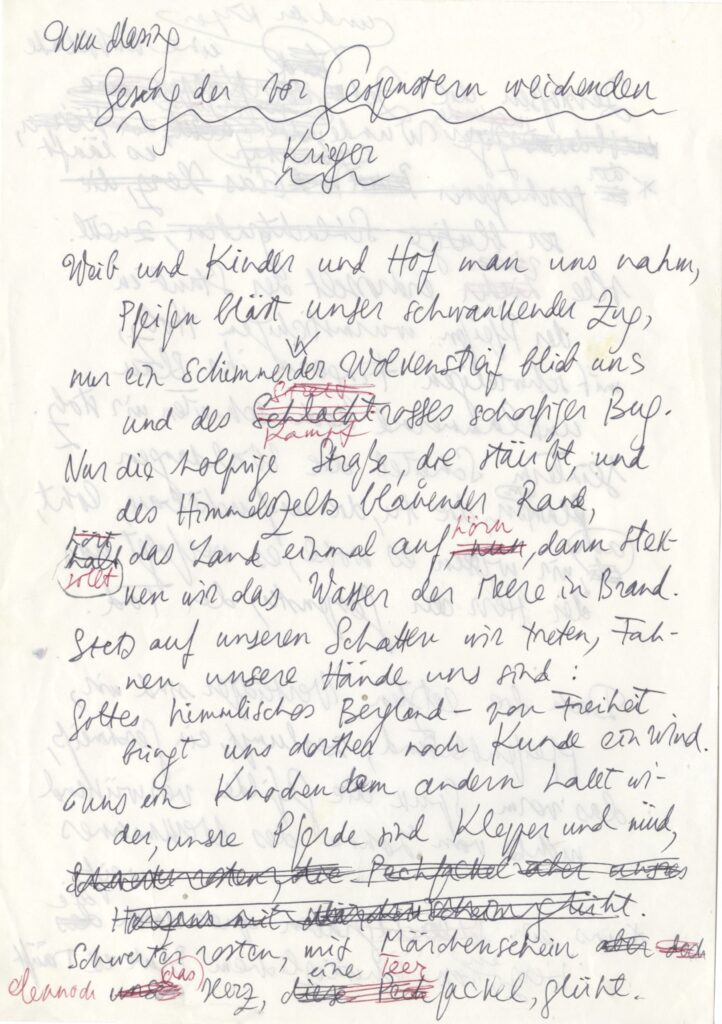 Uku Masing
Gesang der vor Gespenstern weichenden
Krieger
Weib und Kinder und Hof man uns nahm,
Pfeifen bläst unser schwankender Zug,
nur ein schimmernder Wolkenstreif blieb uns
Streit
und des Schlachtrosses schorfiger Bug.
Kampf
Nur die holprige Straße, die stäubt, und
des Himmelszelts blauender Rand,
hört das Land einmal auf hörn, dann stek-
sollt
ken wir das Wasser der Meere in Brand.
Stets auf unseren Schatten wir treten, Fah-
nen unsere Hände uns sind:
Gottes himmlisches Bergland – von Freiheit
bringt uns dorther noch Kunde ein Wind.
Uns ein Knochen dem andern hallt wi-
der, unsre Pferde sind Klepper und müd,
Schwerter rosten, die Pechfackel aber unses
Herzens mit Märchenschein glüht.
Schwerter rosten, mit Märchenschein aber doch
das eine Teer
dennoch uns Herz, diese Pechfackel, glüht.